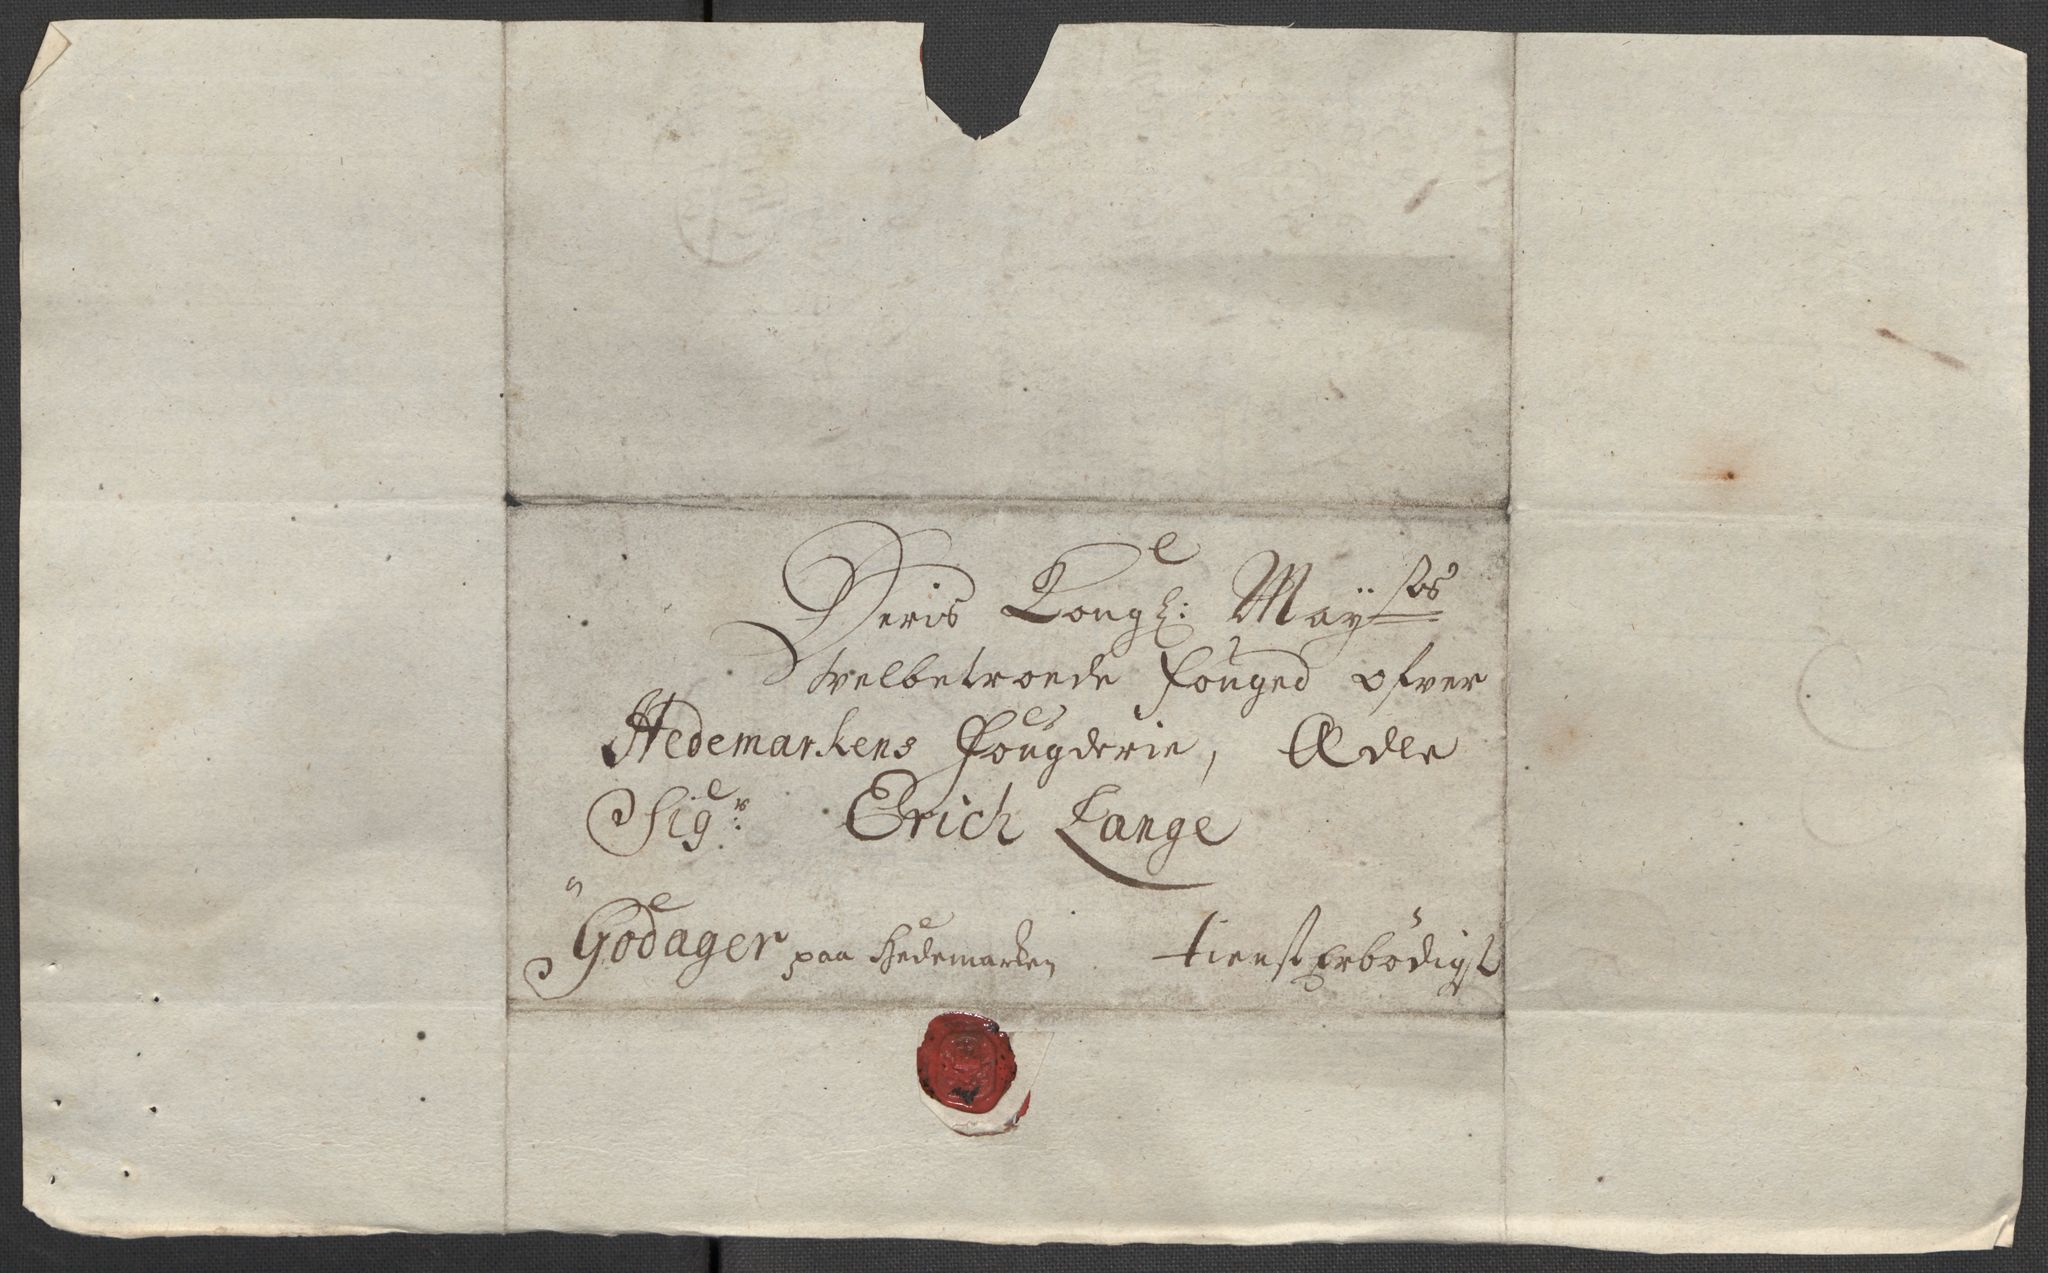 Deris Kongl: Mayſtˢ
velbetroede fouged ofver
Hedemarkens Fougderie, Ædle
Sigʳ: Erich Lange
Godager paa Hedemarken tienstErbödigst